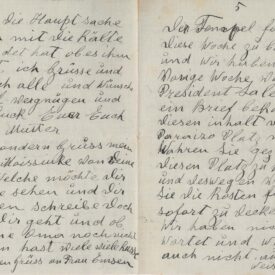 die Hauptsache
mit die Kälte
det hat ob es ihm
ich grüsse und
ch alle und wunsch
Vergnügen und
uck Euer Euch
Mutter
ondern grüss mein
von Deine
welche möchte Dir
sehen und Dir
en schreibe Doch
Dir geht und ob
ne Oma noch nicht
n hast viele
grüss an Frau
5
Der Tempel f
Diese Woche zu b
und wir haben
Vorige Woche, w
President Sale
ein Brief bek
diesen inhalt
Paraizo Platz
Wahren Sie ge
diesen Platz zu
und deswegen w
Sie die kosten f
sofort zu decke
Wir haben nich
wortet und w
auch nicht an